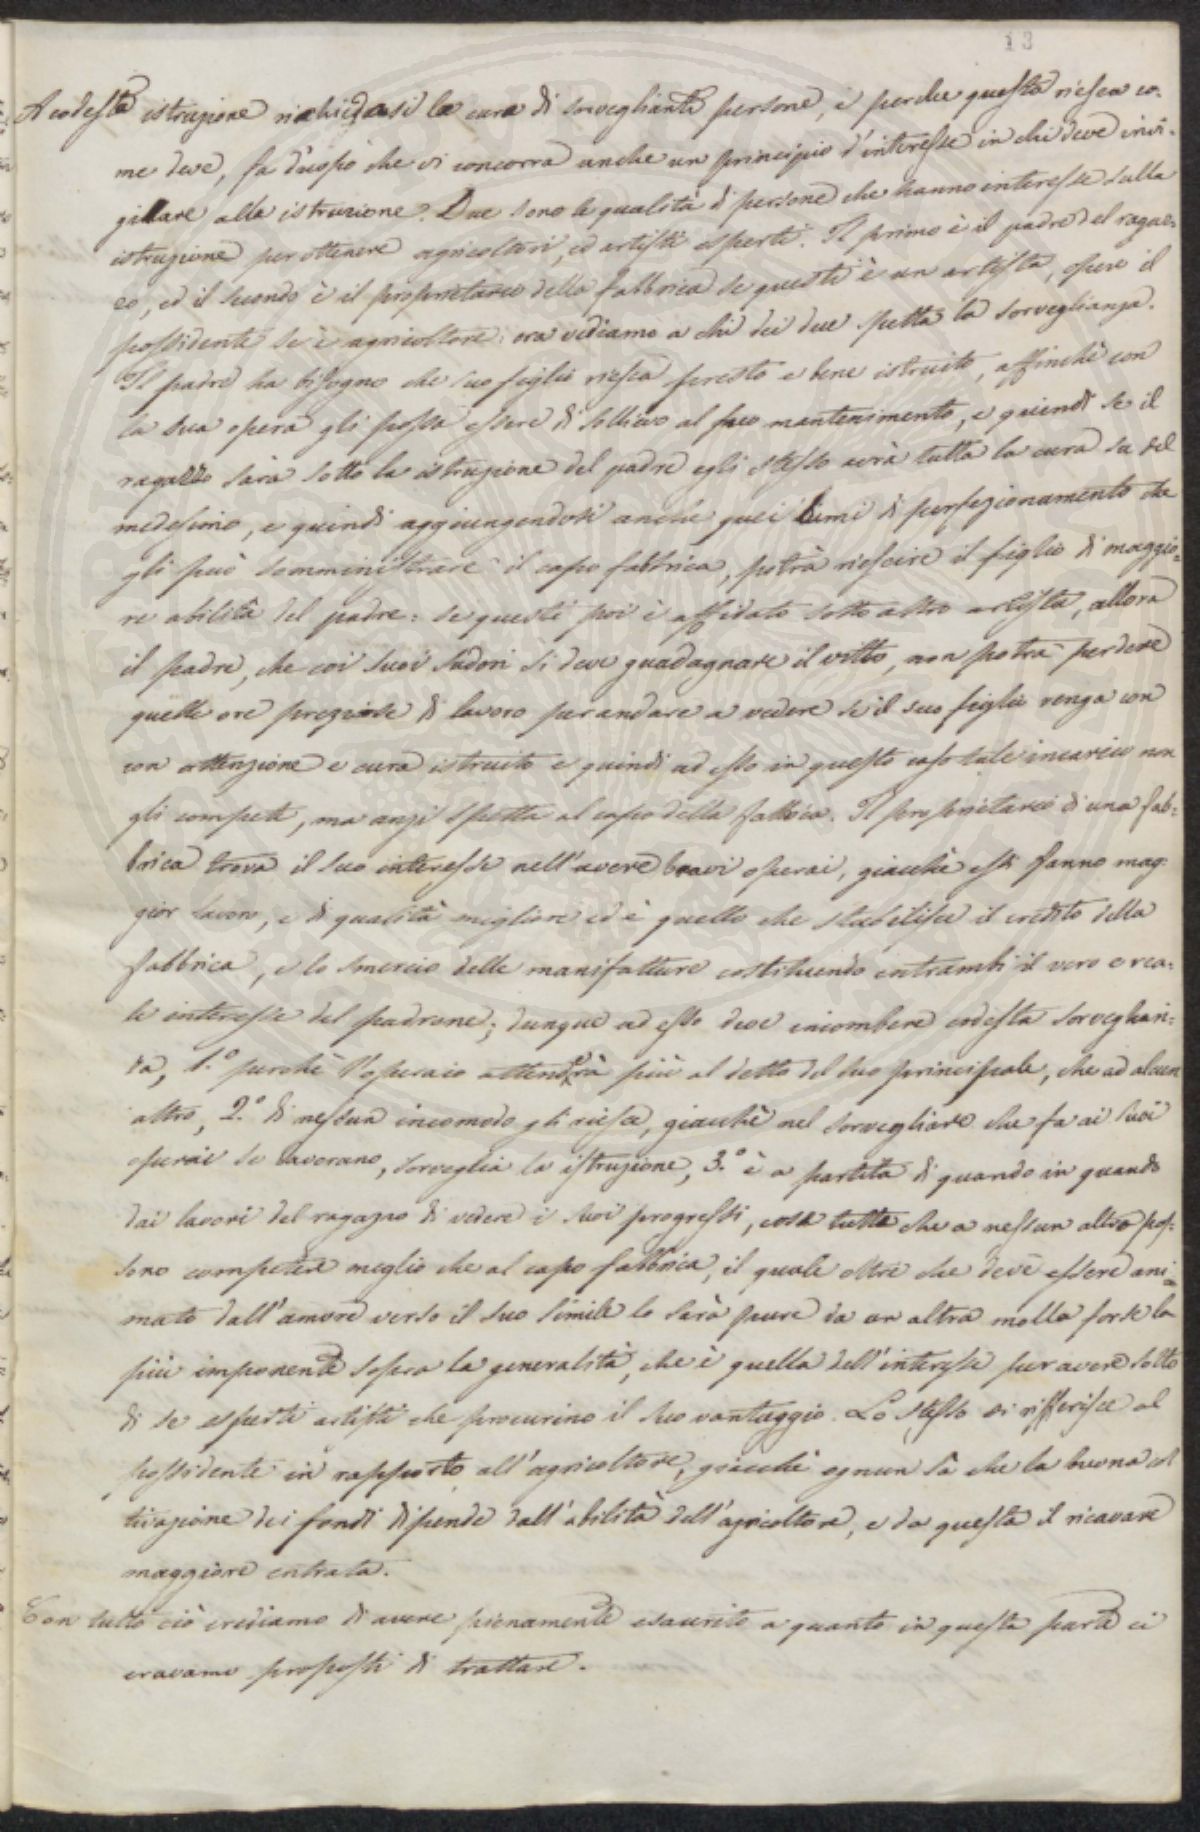 13
A codesta istruzione richiedesi la cura di sorveglianti persone, e perche questa riesca co-
me deve, fa d'uopo che vi concorra anche un principio d'interesse in chi deve invi-
gilare alla istruzione. Due sono le qualità di persone che hanno interesse sulla
istruzione per ottenere agricoltori, ed artisti esperti. Il primo è il padre del ragaz=
zo, ed il secondo è il proprietario della fabbrica se questi è un artista, opure il
possidente se è agricoltore: ora vediamo a chi dei due spetta la sorveglianza.
Il padre ha bisogno che suo figlio riesca presto e bene istruito, affinchè con
la sua opera gli possa essere di sollievo al suo mantenimento, e quindi se il
ragazzo sarà sotto la istruzione del padre egli stesso avrà tutta la cura su del
medesimo, e quindi aggiungendosi anche quei lumi di perfezionamento che
gli può somministrare il capo fabbrica, potrà riescire il figlio di maggio=
re abilità del padre: se questi poi è affidato sotto altro artista, allora
il padre, che coi suoi sudori si deve guadagnare il vitto, non potrà perdere
quelle ore preziose di lavoro per andare a vedere se il suo figlio venga con
con attenzione e cura istruito e quindi ad esso in questo caso tale incarico non
gli compete, ma anzi spetta al capo della fabbrica. Il proprietario di una fab=
brica trova il suo interesse nell'avere bravi operai, giacchè essi fanno mag-
gior lavoro, e di qualità migliore ed è quello che stabilisce il credito della
fabbrica, e lo smercio delle manifatture costituendo entrambi il vero e rea=
le interesse del padrone; dunque ad esso deve incombere codesta sorveglian=
za, 1.º perchè l'operaio attenderà più al detto del suo principale, che ad alcun
altro, 2.º di nessun incomodo gli riesce, giacchè nel sorvegliare che fa ai suoi
operai se lavorano, sorveglia la istruzione, 3.º è a portata di quando in quando
dai lavori del ragazzo di vedere i suoi progressi, cose tutte che a nessun altro pos=
sono competere meglio che al capo fabbrica, il quale oltre che deve essere ani=
mato dall'amore verso il suo simile lo sarà pure da un altra molla forse la
più imponente sopra la generalità, che è quella dell'interesse per avere sotto
di se esperti artisti che procurino il suo vantaggio. Lo stesso si rifferisce al
possidente in rapporto all'agricoltore, giacchè ognun sà che la buona col
tivazione dei fondi dipende dall'abilità dell'agricoltore, e da questa il ricavare
maggiore entrata.
Con tutto ciò crediamo di avere pienamente esaurito a quanto in questa parte ci
eravamo proposti di trattare.